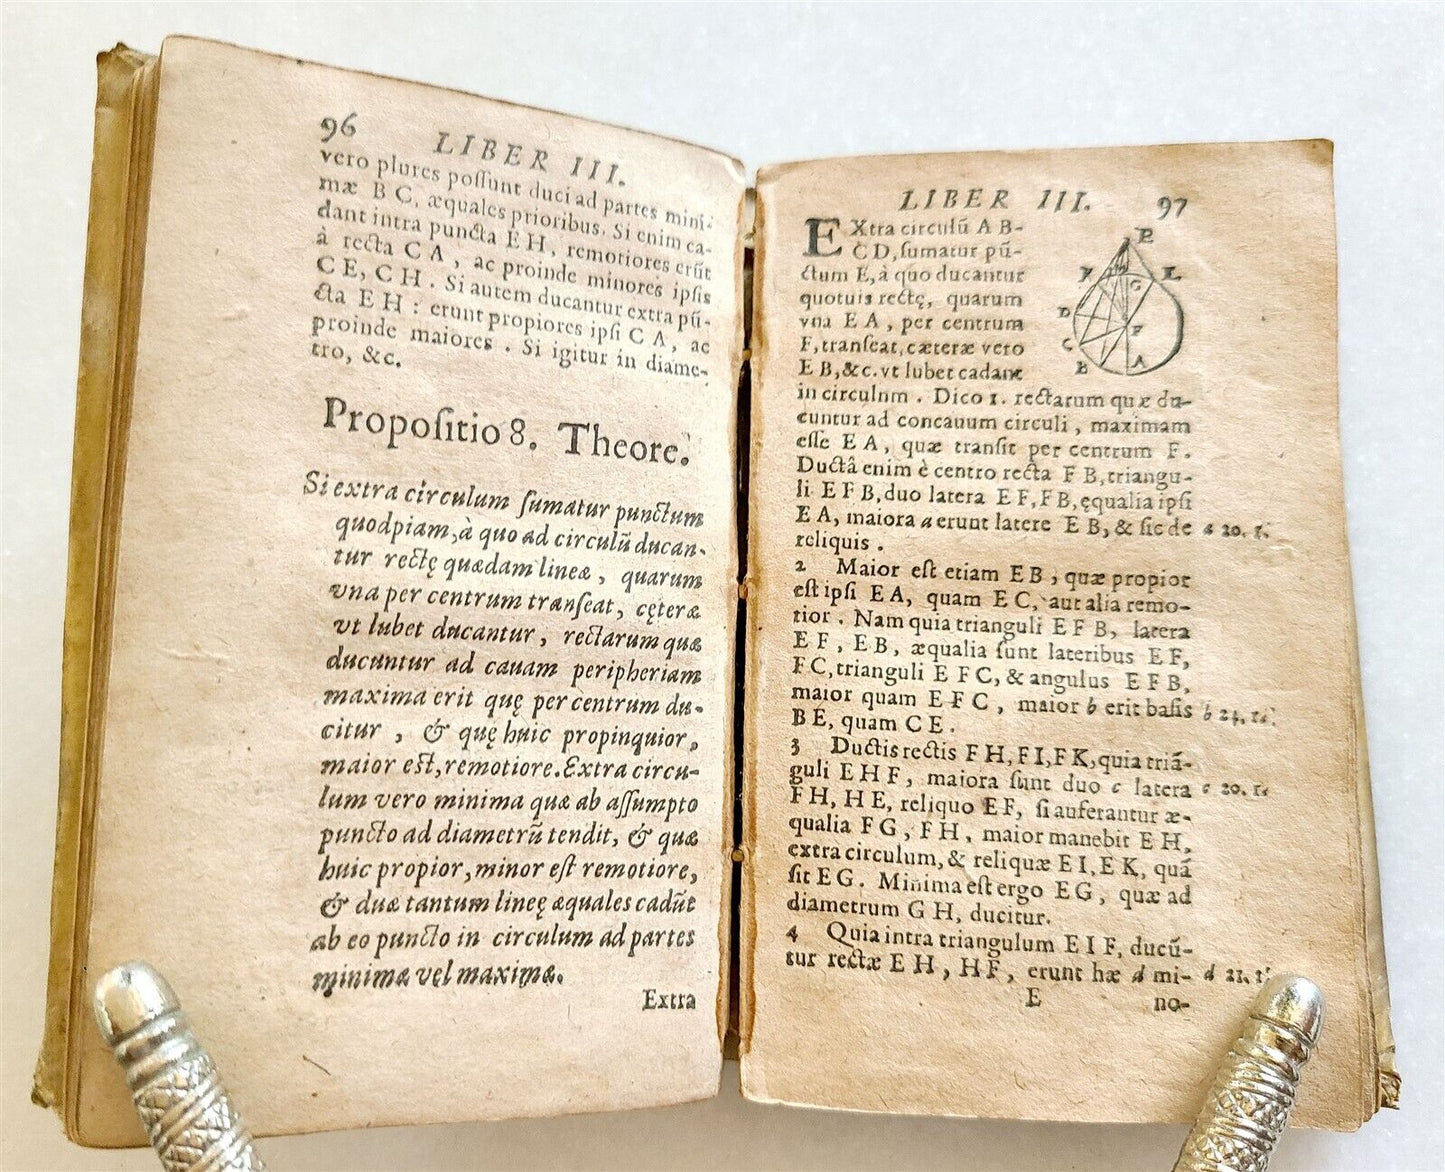 96
LIBER III.
vero plures poſſunt duci ad partes mini-
mæ B C, æquales prioribus. Si enim ca-
dant intra puncta E H, remotiores erūt
à recta C A, ac proinde minores ipſis
C E, C H. Si autem ducantur extra pū-
cta E H: erunt propiores ipſi C A, ac
proinde maiores. Si igitur in diame-
tro, &c.
Propoſitio 8. Theore.
Si extra circulum ſumatur punctum
quodpiam, à quo ad circulū ducan-
tur rectę quædam lineæ, quarum
vna per centrum tranſeat, cęteræ
vt lubet ducantur, rectarum quæ
ducuntur ad cauam peripheriam
maxima erit quę per centrum du-
citur, & quę huic propinquior,
maior est, remotiore. Extra circu-
lum vero minima quæ ab aſſumpto
puncto ad diametrū tendit, & quæ
huic propior, minor eſt remotiore,
& duæ tantum lineę æquales cadūt
ab eo puncto in circulum ad partes
minimæ vel maximæ.
Extra
LIBER III. 97
EXtra circulū A B-
C D, ſumatur pū-
ctum E, à quo ducantur
quotuis rectę, quarum
vna E A, per centrum
F, tranſeat, cæteræ vero
E B, &c. vt lubet cadant
in circulum. Dico 1. rectarum quæ du-
cuntur ad concauum circuli, maximam
eſſe E A, quæ tranſit per centrum F.
Ductâ enim è centro recta F B, triangu-
li E F B, duo latera E F, F B, ęqualia ipſi
E A, maiora a erunt latere E B, & ſic de a 20. 1.
reliquis.
2 Maior eſt etiam E B, quæ propior
eſt ipſi E A, quam E C, aut alia remo-
tior. Nam quia trianguli E F B, latera
E F, E B, æqualia ſunt lateribus E F,
F C, trianguli E F C, & angulus E F B,
maior quam E F C, maior b erit baſis b 24. 1.
B E, quam C E.
3 Ductis rectis F H, F I, F K, quia triā-
guli E H F, maiora ſunt duo c latera c 20. 1.
F H, H E, reliquo E F, ſi auferantur æ-
qualia F G, F H, maior manebit E H,
extra circulum, & reliquæ E I, E K, quā
ſit E G. Minima eſt ergo E G, quæ ad
diametrum G H, ducitur.
4 Quia intra triangulum E I F, ducū-
tur rectæ E H, H F, erunt hæ d mi- d 21. 1.
E no-